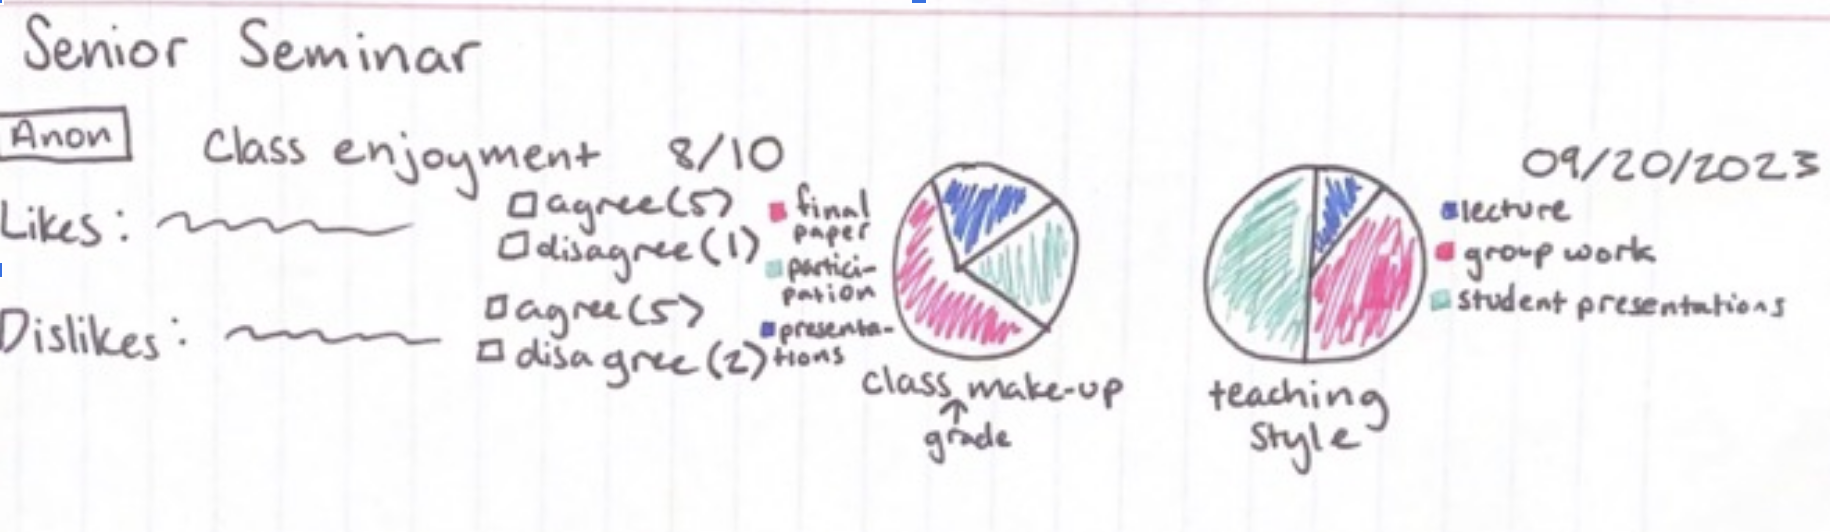 Senior Seminar
Anon
Class enjoyment 8/10
09/20/2023
Likes:
agree (5)
disagree (1)
Dislikes:
agree (5)
disagree (2)
final
paper
partici-
pation
presenta-
tions
class make-up
grade
lecture
group work
student presentations
teaching
style